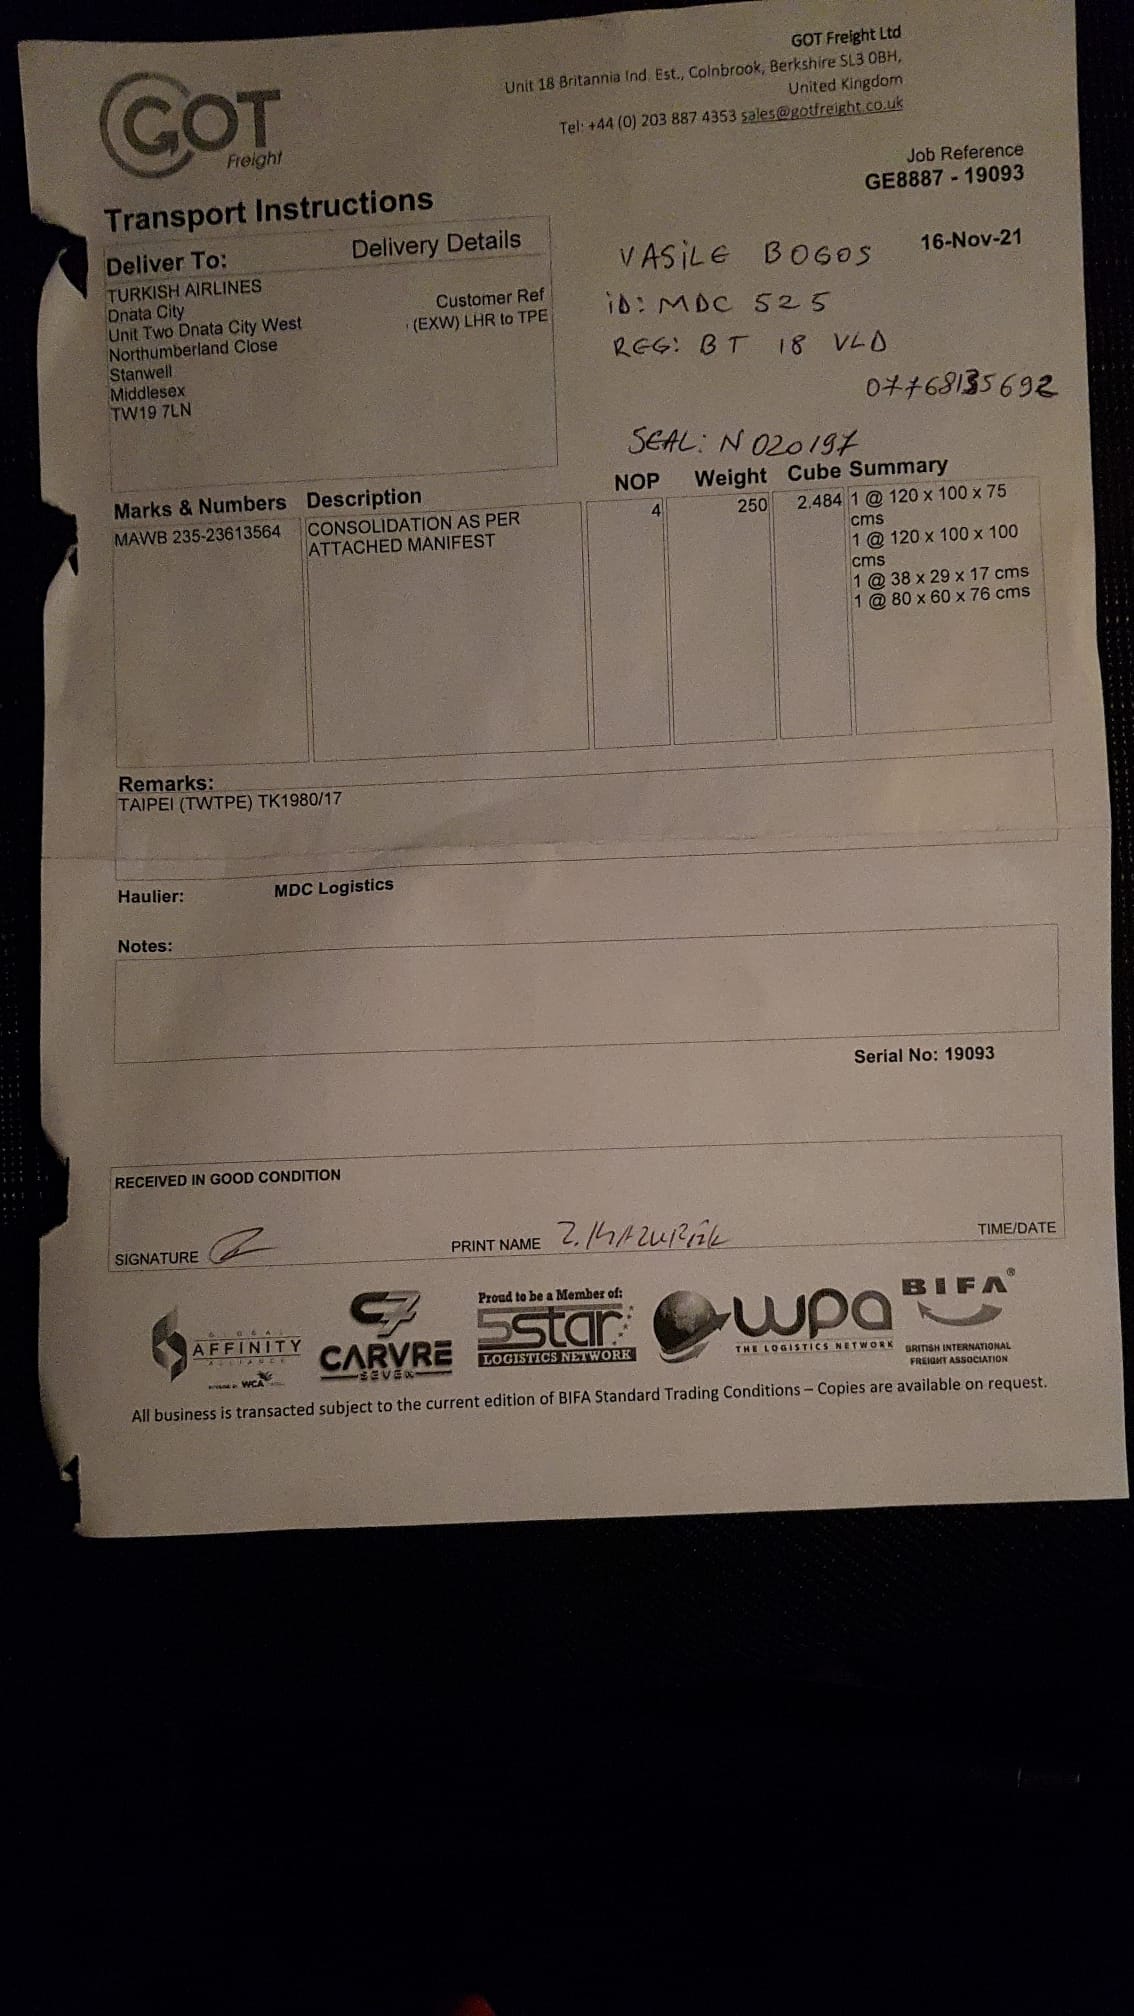 GOT
Freight
GOT Freight Ltd
Unit 18 Britannia Ind. Est., Colnbrook, Berkshire SL3 0BH,
United Kingdom
Tel: +44 (0) 203 887 4353 sales@gotfreight.co.uk
Job Reference
GE8887 - 19093
Transport Instructions
16-Nov-21
Deliver To:
Delivery Details
TURKISH AIRLINES
Dnata City
Unit Two Dnata City West
Northumberland Close
Stanwell
Middlesex
TW19 7LN
Customer Ref
(EXW) LHR to TPE
VASILE BOGOS
iD: MDC 525
REG: BT 18 VLD
07768135692
SEAL: N 020197
Marks & Numbers Description NOP Weight Cube Summary
MAWB 235-23613564 CONSOLIDATION AS PER 4 250 2.484 1 @ 120 x 100 x 75
ATTACHED MANIFEST cms
1 @ 120 x 100 x 100
cms
1 @ 38 x 29 x 17 cms
1 @ 80 x 60 x 76 cms
Remarks:
TAIPEI (TWTPE) TK1980/17
Haulier: MDC Logistics
Notes:
Serial No: 19093
RECEIVED IN GOOD CONDITION
SIGNATURE PRINT NAME TIME/DATE
GLOBAL
AFFINITY
ALLIANCE
WCA
C7
CARVRE
SEVEN
Proud to be a Member of:
5star
LOGISTICS NETWORK
wpa
THE LOGISTICS NETWORK
BIFA®
BRITISH INTERNATIONAL
FREIGHT ASSOCIATION
All business is transacted subject to the current edition of BIFA Standard Trading Conditions – Copies are available on request.